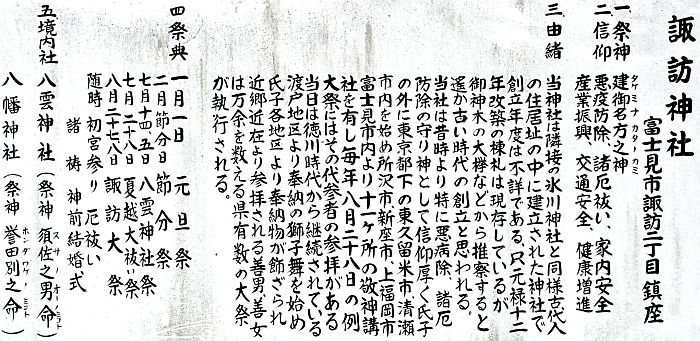 諏訪神社
富士見市諏訪二丁目鎮座
一、祭神 建御名方之神
タケミナカタノカミ
二、信仰 悪疫防除、諸厄祓い、家内安全
産業振興、交通安全、健康増進
三、由緒
当神社は隣接の氷川神社と同様古代人
の住居址の中に建立された神社で
創立年度は不詳である、只元禄十二
年改築の棟札は現存しているが
御神木の大欅などから推察すると
遥か古い時代の創立と思われる。
当社は昔時より特に悪病除 諸厄
防除の守り神として信仰厚く氏子
の外に東京都下の東久留米市清瀬
市内を始め所沢市新座市上福岡市
富士見市内より十一ヶ所の敬神講
社を有し毎年八月二十八日の例
大祭にはその代参者の参拝がある
当日は徳川時代から継続されている
渡戸地区より奉納の獅子舞を始め
氏子各地区より奉納物が飾ざられ
近郷近在より参拝される善男善女
は万余を数える県有数の大祭
が執行される。
四 祭典 一月一日 元旦祭
二月節分日 節分祭
七月十四、五日 八雲神社祭
七月二十八日 夏越大祓い祭
八月二十七、八日 諏訪大祭
随時 初宮参り 厄祓い
諸祷 神前結婚式
五 境内社 八雲神社(祭神 須佐之男命)
スサノオノミコト
八幡神社(祭神 誉田別之命)
ホンダワケノミコト